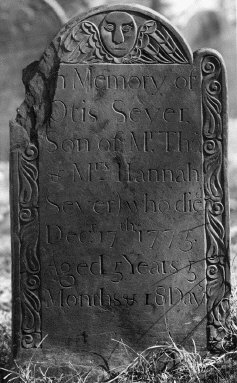 In Memory of
Otis Sever,
Son of Mr. Tho
& Mrs. Hannah
Sever, who die
Decr. 17th 1775,
Aged 5 Years 5
Months & 18 Day